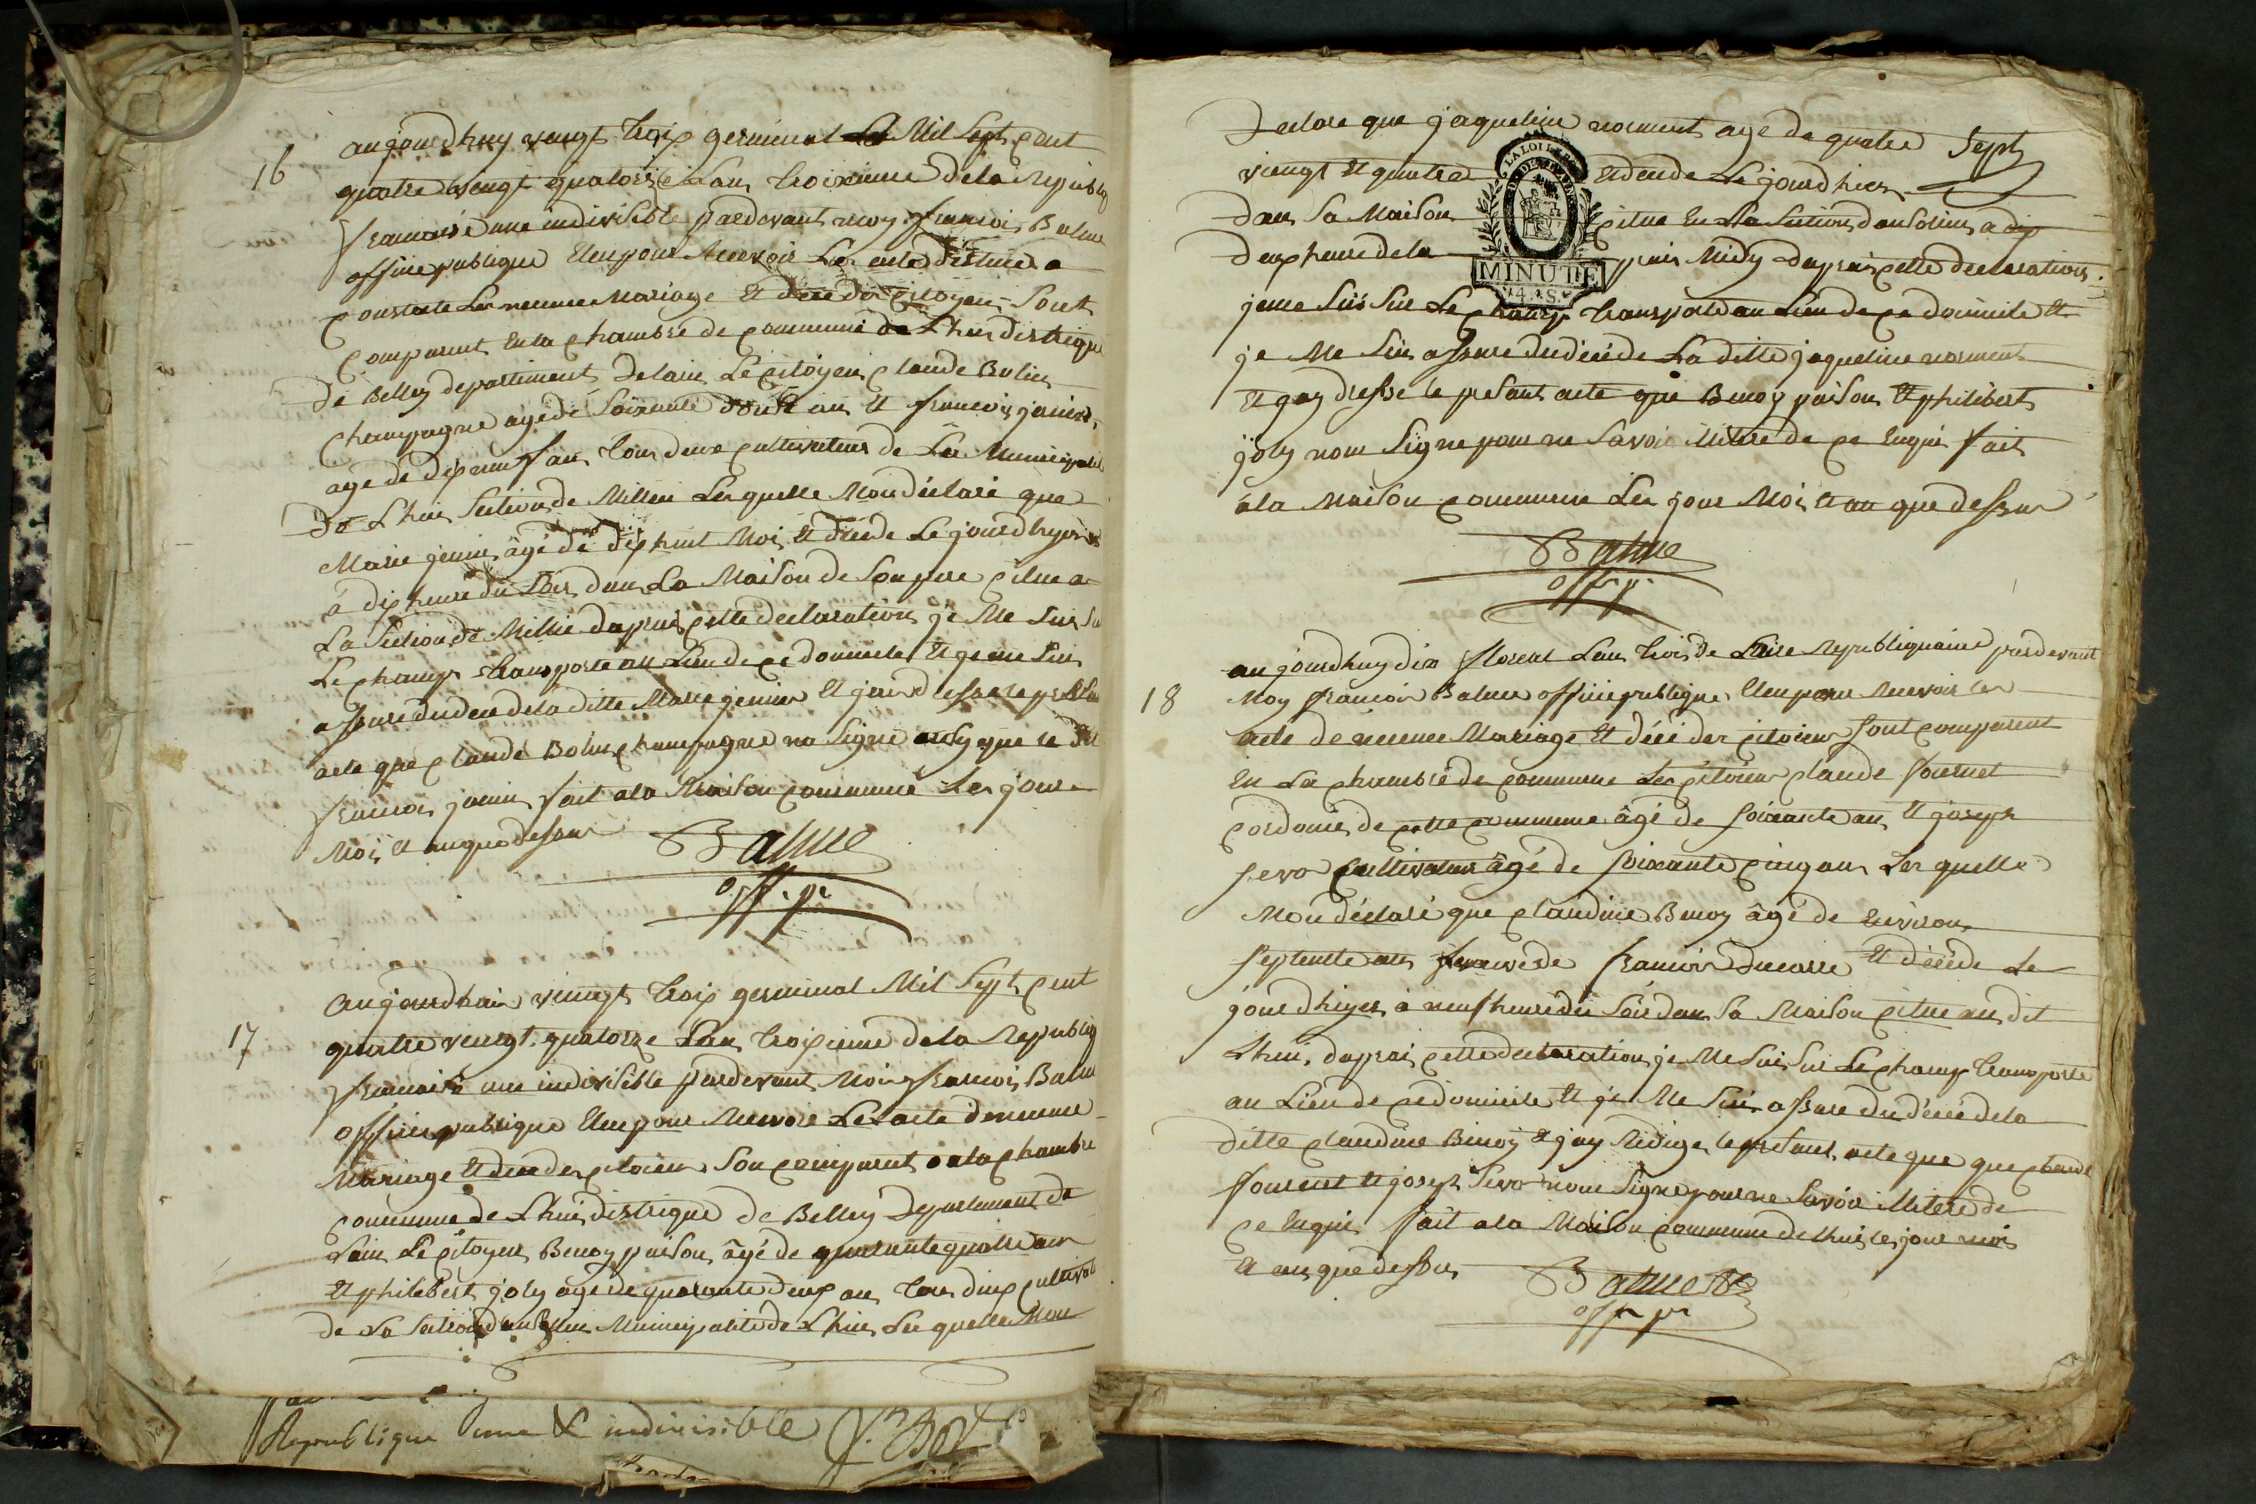 16
aujourdhuy vingt trois germinal Mil Sept cent
quatre vingt quatorze Lan troixieme dela Republiq
francaise une indivisible pardevant moy francois Balme
office publique Eleu pour Recevoir Les acte destine a
constate Les nessence Mariage et décé des citoyen Sont
comparut en la chambre de commune de Lhuis distrique
De Belley departement Delain Le citoyen claude Bolin
champagne agé de Soixante ans et francois jenin
agé de dix neuf an tous deux cultivateur de La Municipalité
De Lhuis Section de Millieu Lesquelle Mon déclaré que
Marie jenin âgé de dix huit Moi et décédé Le jourdhyer
à dix heure du Soir dans La Maison de Son pere citue a
La Section de Millieu daprais cette declaration je Me Suis Su
Le champ transporte au Lieu de ce domicile et je me Suis
assure du décé dela ditte Marie jenin et jai dresse le présan
acte que claude Bolin champagne na Signe ausy que le dit
francois jenin fait ala Maison commune Les jour
Moi et an que dessus
Balme
off. p.
17
aujourdhui vingt troix germinal Mil Sept cent
quatre vingt quatorze Lan troixieme dela Republiq
francaise une indivisible pardevant Moi francois Balme
officier publique Eleu pour Recevoir Les acte de nessence
Mariage et décé des citoien Son comparut en la chambre
commune de Lhuis distrique de Belley Departement de
Lain Le citoyen Benoy puison âgé de quarante quatre an
et philibert joly agé de quarante deux an tous deux cultivat
de La Section dansolin Municipalite de Lhuis Les quelle Mon
Sept
Declare que jaqueline norment agé de quatre
viengt et quatre et décédé Le jourdhier
dans Sa Maison citue en La Section dansolin a dix
deux heure de la prais Midy daprais cette declaration
LALOI LE ROI
MINUTE
4 s
jeme Suis Sur Le champ transporte au Lieu de ce domicile et
je Me Suis assure du décé de La ditte jaqueline norment
et jay dresse le presant acte que Benoy puison et philibert
joly nont Signe pour ne Savoir Mittre de ce Enquis fait
à la Maison commune Les jour Moi et an que dessus
Balme
off. p.
18
aujourdhuy dix floreal Lan trois de Laire Republiquaine pardevant
Moy francois Balme office publique Eleu pour Recevoir les
acte de nessence Mariage et décé des citoien Sont comparut
En La chambre de commune Les citoien claude fournet
cordonié de cette commune âgé de Soixante an et joseph
Sevo Cultivateur âgé de Soixante cinq an Les quelle
Mon déclaré que claudine Benoy âgé de Environ
Septente an francois ducarre et décédé Le
jourdhiyer à neuf heure du Soir dans Sa Maison citue au dit
Lhuis daprai cette declaration je Me Suis Sur Le champ transporte
au Lieu de ce domicile et je Me Suis assure du décé dela
ditte claudine Binoy et jay Rédige le presant acte que que claude
fournet et joseph Sevo nont Signe pour ne Savoir Mitere de
ce Enquis fait ala Maison commune de Lhuis les jour mois
et an que dessus
Balme
off. p.
Republique une & indivisible